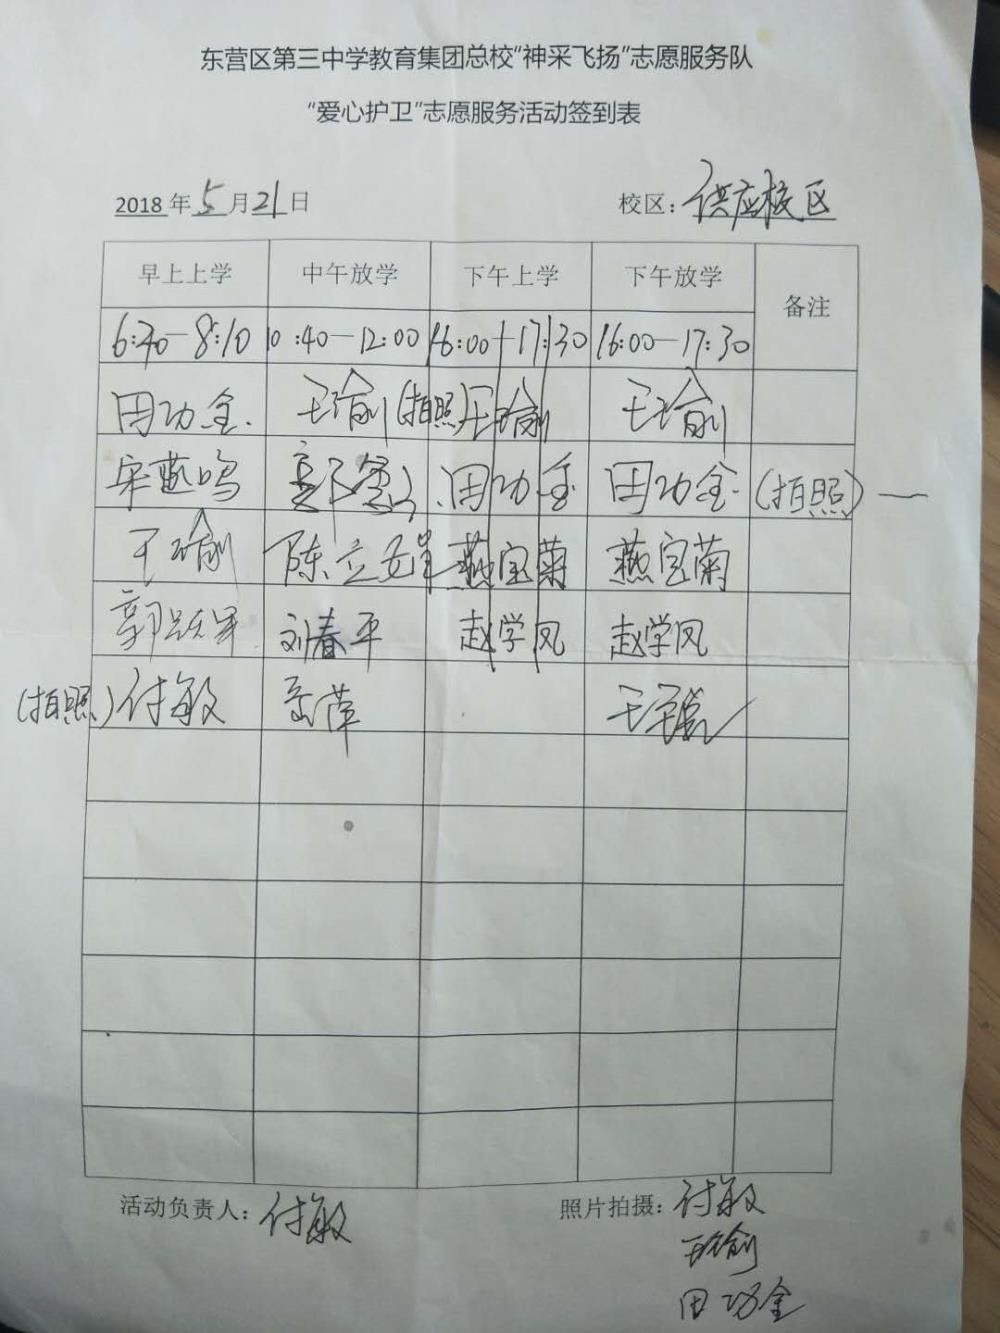 东营区第三中学教育集团总校“神采飞扬”志愿服务队
“爱心护卫”志愿服务活动签到表
2018年5月21日 校区：供应校区
早上上学 中午放学 下午上学 下午放学 备注
6:40—8:10 10:40—12:00 16:00—17:30 16:00—17:30
田功金 王瑜(拍照) 王瑜 王瑜
宋燕鸣 田功金 田功金 (拍照)—
王瑜 陈立 燕宝菊 燕宝菊
郭跃军 刘春平 赵学风 赵学风
(拍照)付敏 岳萍
活动负责人：付敏 照片拍摄：付敏
王瑜
田功金